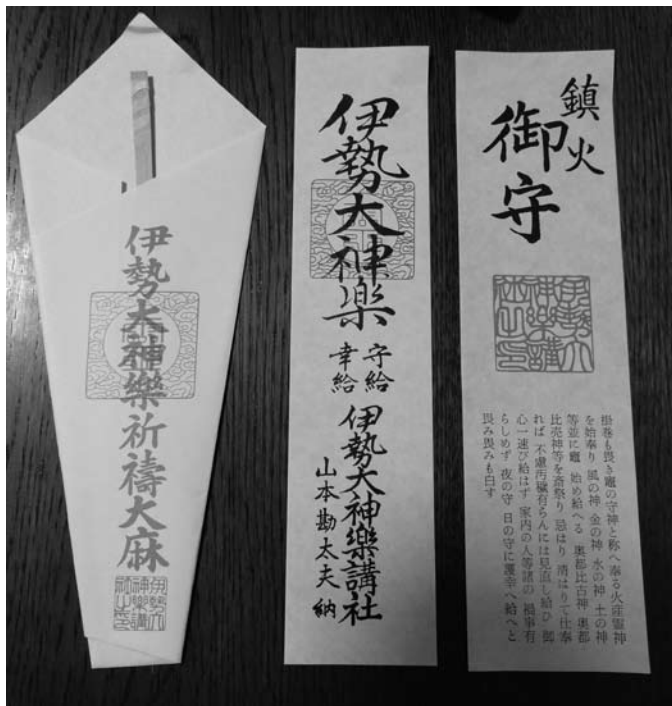 伊勢大神樂祈禱大麻
伊勢大
神樂講
社之印
伊勢大神樂
守給
幸給
伊勢大神樂講社
山本勘太夫 納
鎮火
御守
伊勢大
神樂講
社之印
掛巻も畏き竈の守神と称へ奉る火産霊神
を始奉り 風の神 金の神 水の神 土の神
等並に竈 始め給へる 奥都比古神 奥都
比売神等を斎祭り 忌はり 清はりて比奉
れば 不慮汚穢有らんには見直し給ひ 御
心一速び給はず 家内の人等諸の 禍事有
らしめず 夜の守 日の守に護幸へ給へと
畏み畏みも白す